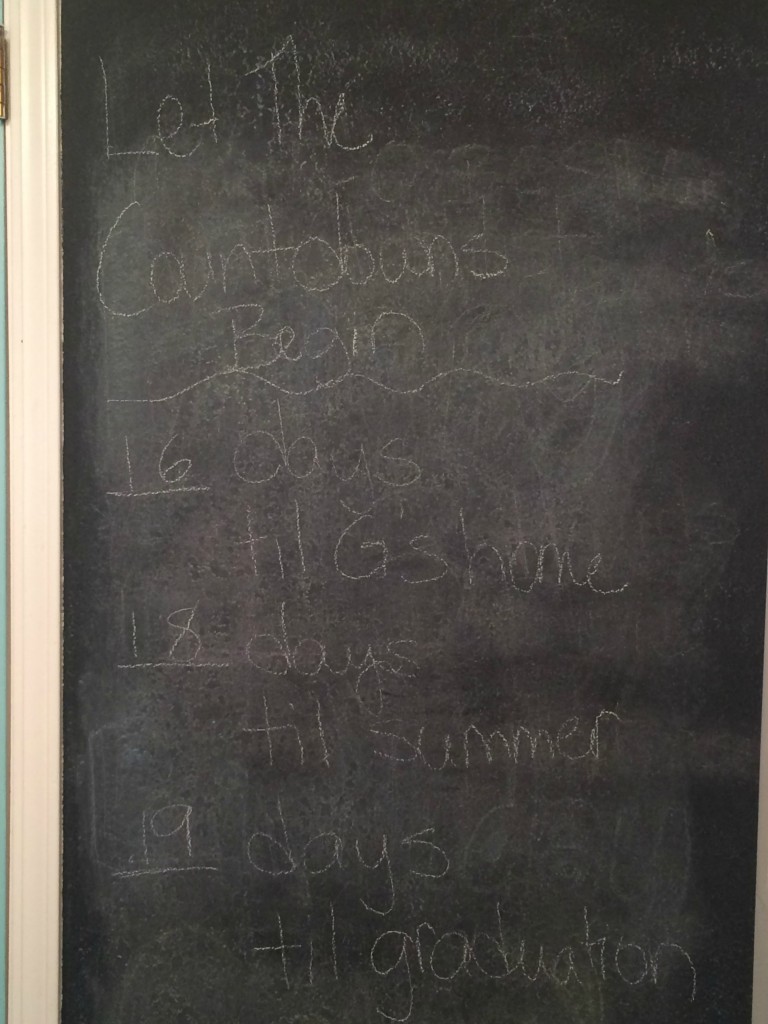 Let The
Countdowns
Begin
16 days
til G's home
18 days
til summer
19 days
til graduation